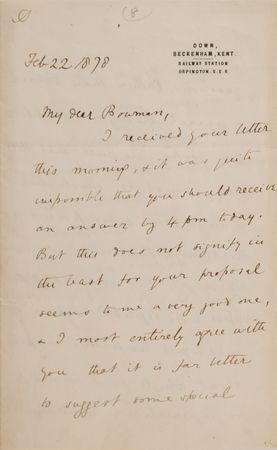 (8
DOWN,
BECKENHAM, KENT.
RAILWAY STATION
ORPINGTON. S.E.R.
Feb 22 1878
My dear Bowman,
I received your letter
this morning, & it was quite
impossible that you should receive
an answer by 4 pm today.
But this does not signify in
the least for your proposal
seems to me a very good one,
& I most entirely agree with
you that it is far better
to suggest some special